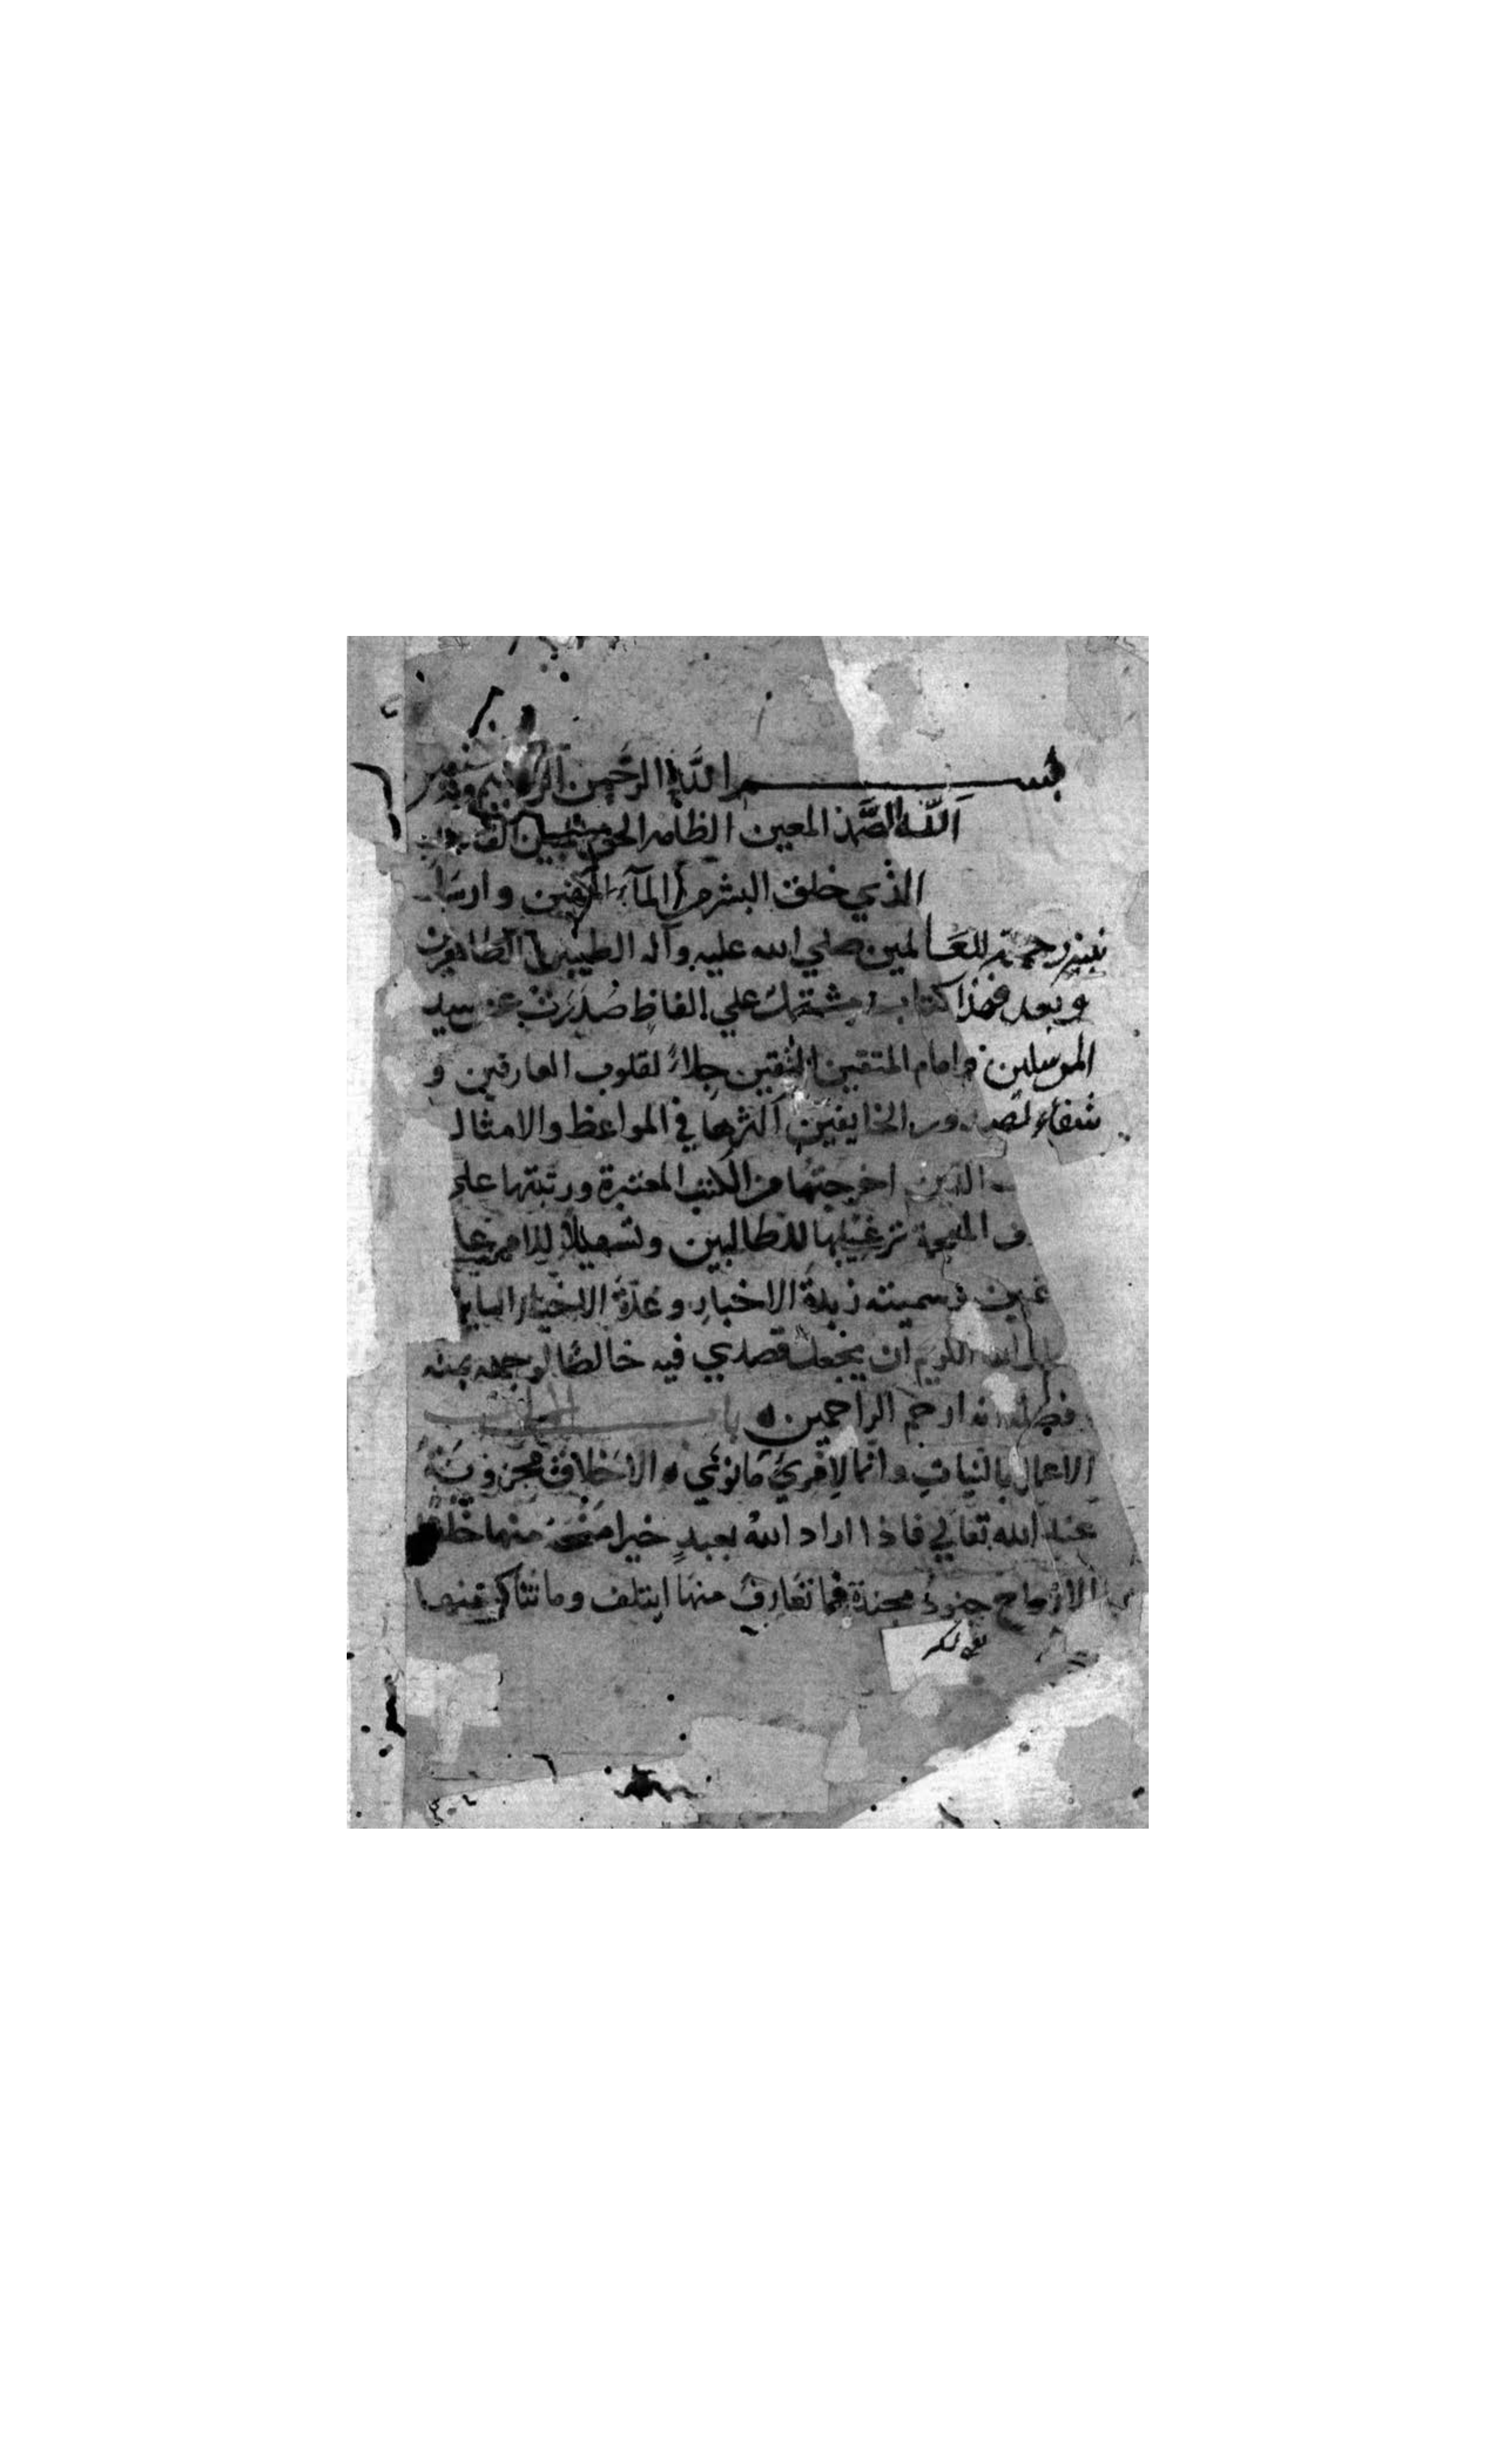 بسم الله الرحمن الرحيم وبه
الله الصمد المعين الظاهر الحق المبين
الذي خلق البشر من المآء المهين وارسل
نبيه رحمة للعالمين صلي الله عليه وآله الطيبين الطاهرين
وبعد فهذا كتاب مشتمل علي الفاظ صدرت عن سيد
المرسلين وامام المتقين جلاءً لقلوب العارفين و
شفاء لصدور الخايفين اكثرها في المواعظ والامثال
الدين اخرجتها من الكتب المعتبرة ورتبتها علي
المعجمة ترغيبا للطالبين وتسهيلا
وسميته زبدة الاخبار وعدة الاخيار
الله الكريم ان يجعل قصدي فيه خالصًا لوجهه بمنه
فضله انه ارحم الراحمين باب
الاعمال بالنيات وانما لامرئ مانوي الاخلاق مخزونة
عند الله تعالي فاذا اراد الله بعبدٍ خيرا منحه منها خلقا
الارواح جنود مجندة فما تعارف منها ايتلف وما تناكر منها